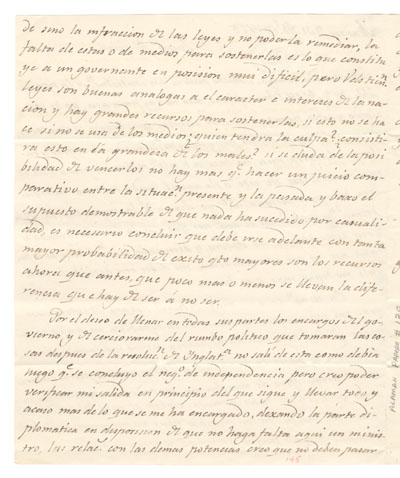 de sino la infraccion de las leyes y no poderla remediar, la
falta de estas o de medios para sostenerlas es lo que constitu
ye a un governante en posision mui dificil, pero Vds tien.
leyes son buenas analogas a el caracter e intereses de la na
cion y hay grandes recursos para sostenerlas, si esto no se ha
ce si no se usa de los medios ¿quien tendra la culpa? ¿consisti
ra esto en la grandeza de los males? si se duda de la posi
bilidad de vencerlos no hay mas q.e hacer un juicio com-
parativo entre la situac.n presente y la pasada, y baxo el
supuesto demostrable de que nada ha sucedido por casuali
dad, es necesario concluir que debe irse adelante con tanta
mayor probabilidad de exito q.to mayores son los recursos
ahora que antes, que poco mas o menos se llevan la dife
rencia que hay de ser á no ser.
Por el deseo de llenar en todas sus partes los encargos del go-
vierno y de cerciorarme del rumbo politico que tomaran las co-
sas despues de la resoluc.n de Inglat.a no salí de esta como debia
luego q.e se concluyo el neg.o de independencia pero creo poder
verificar mi salida en principio del que sigue y llevar todo y
acaso mas de lo que se me ha encargado, dexando la parte di-
plomatica en disposicion de que no haga falta aqui un minis-
tro, las relac. con las demas potencias creo que no deben pasar